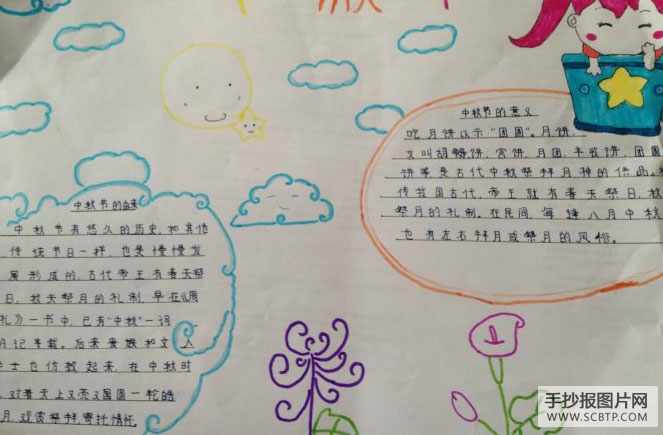 中秋节的由来
中秋节有悠久的历史，和其他
传统节日一样，也是慢慢发
展形成的，古代帝王有春天祭
日，秋天祭月的礼制，早在《周
礼》一书中，已有“中秋”一词
月记年载。后来贵族和文人
士也仿效起来，在中秋时
，对着天上又亮又圆一轮皓
月，观赏祭拜，寄托情怀
中秋节的意义
吃月饼以示“团圆”。月饼，
又叫胡饼，宫饼，月团，丰收饼，团圆
饼等是古代中秋祭拜月神的供品。
传我国古代，帝王就有春天祭日，秋
祭月的礼制。在民间，每逢八月中秋
也有左右拜月或祭月的风俗。
手抄报图片网
WWW.SCBTP.COM